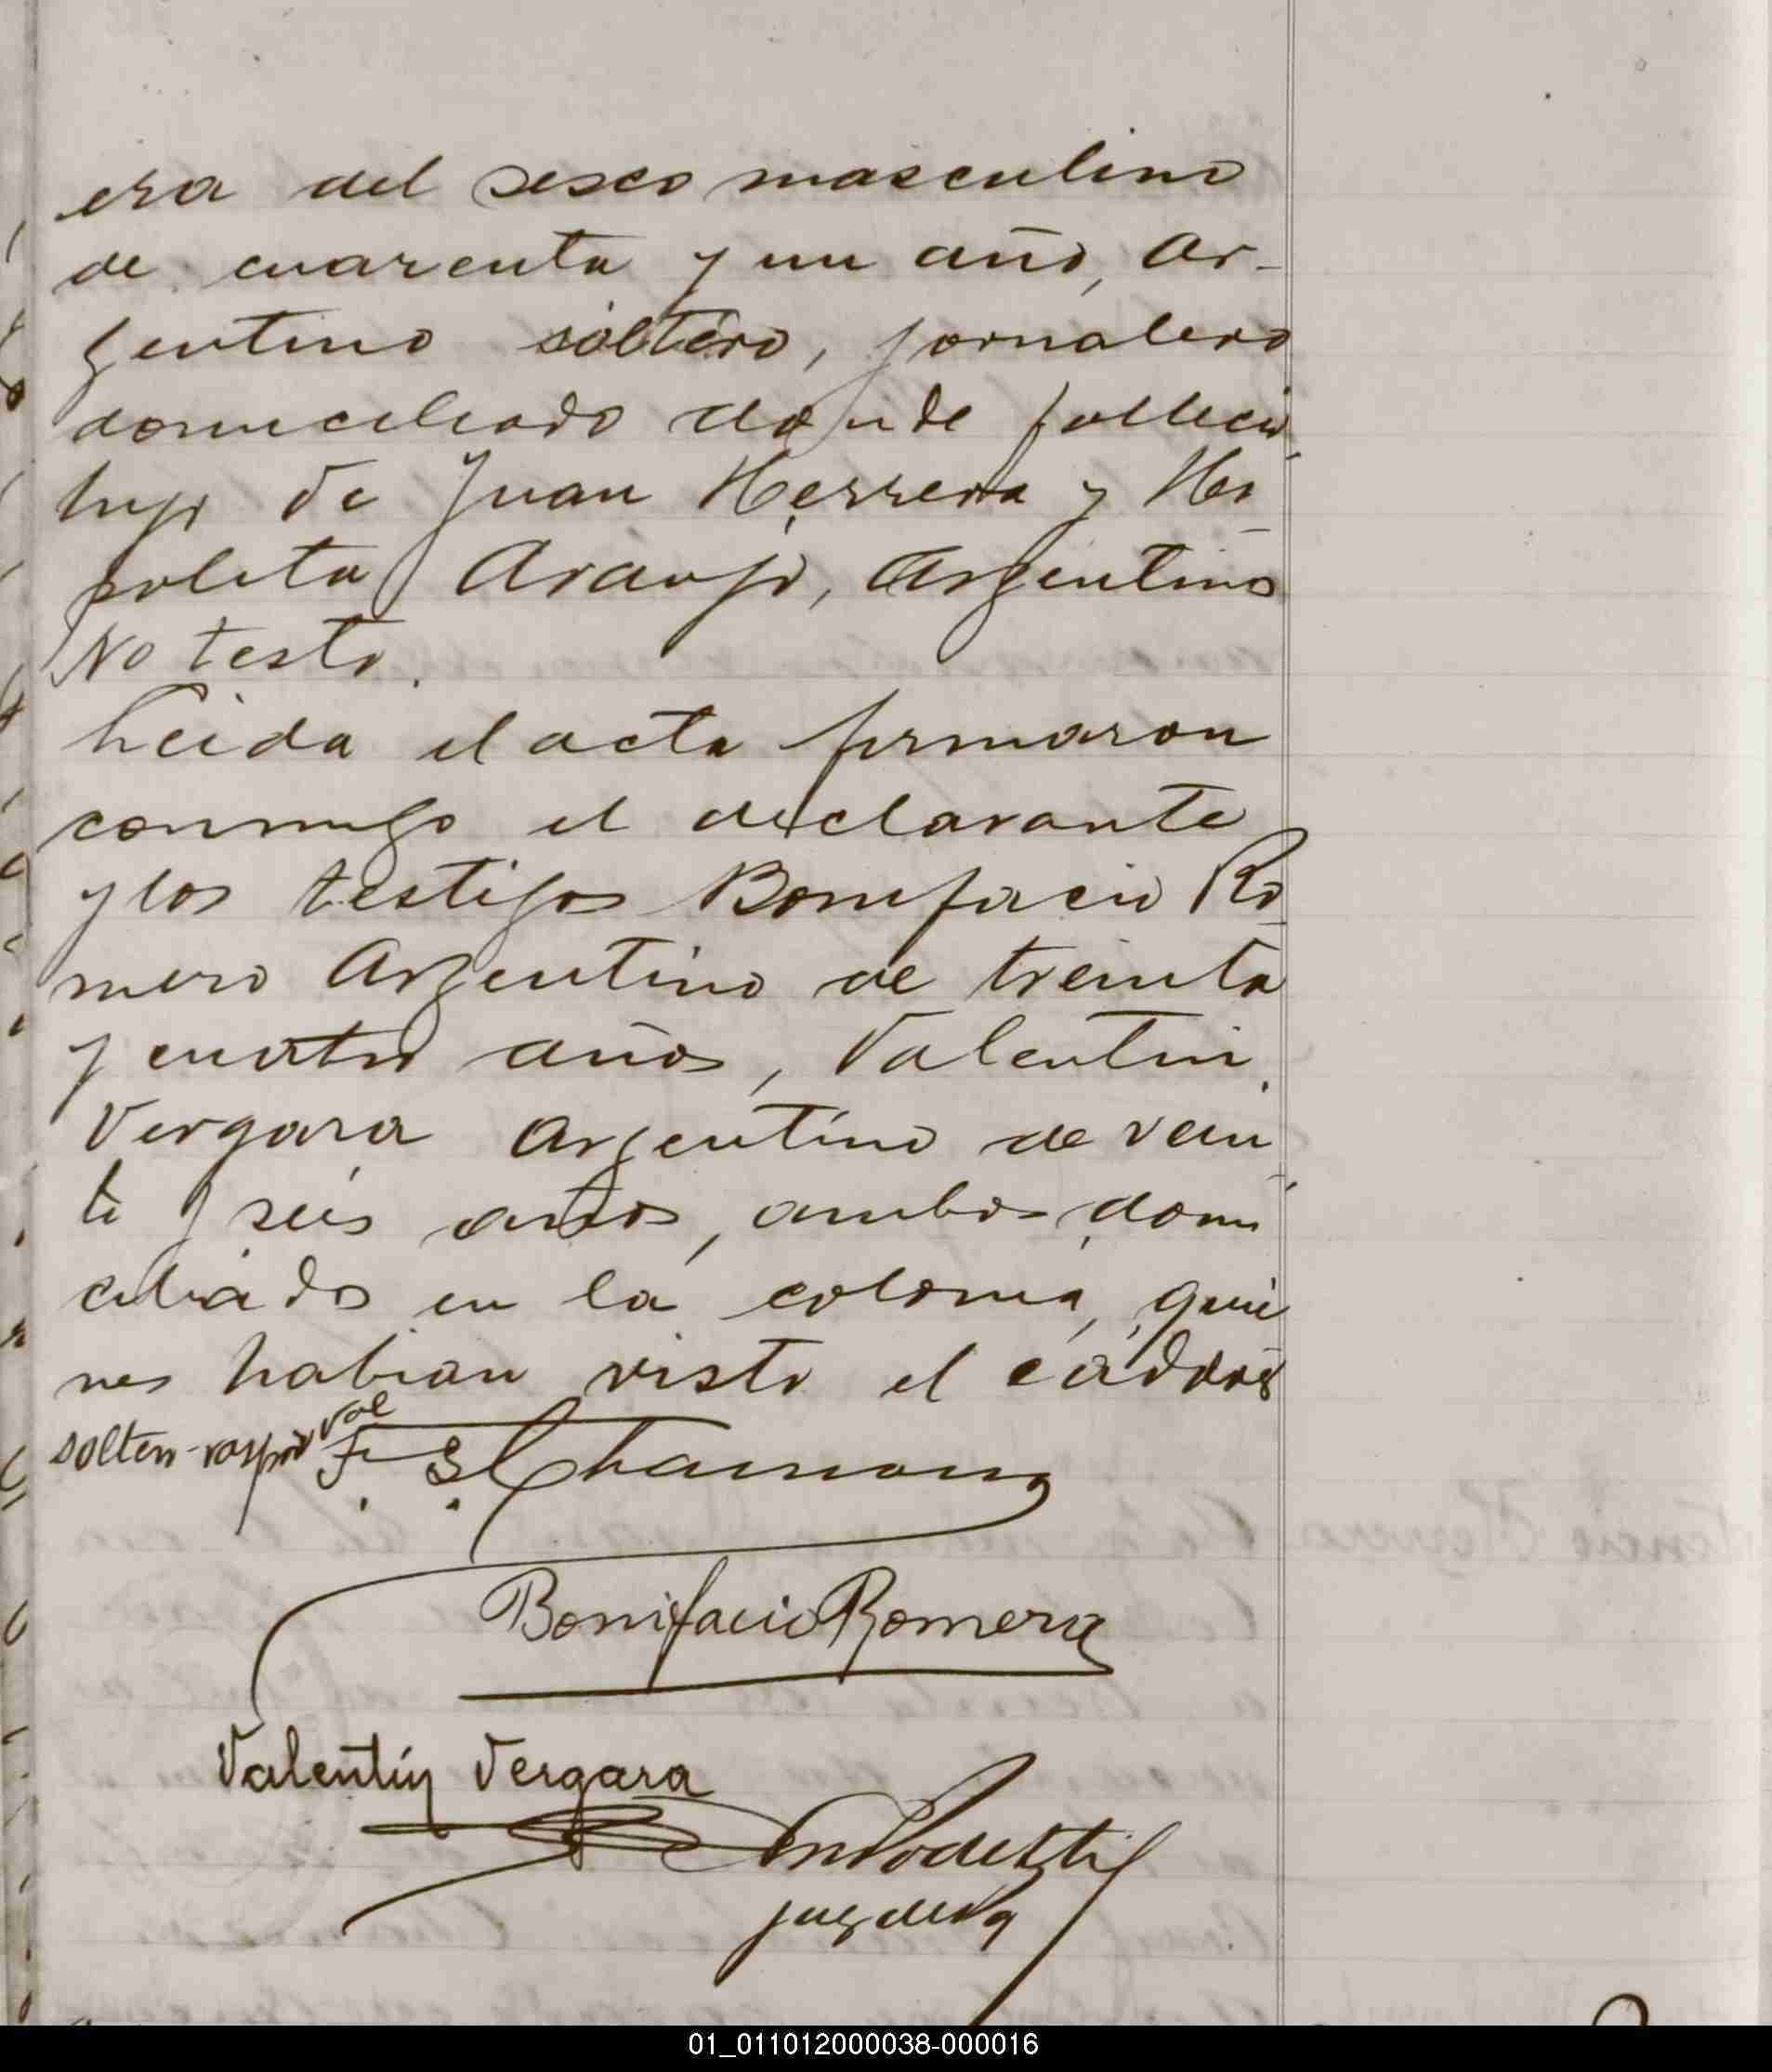 era del sesco masculino
de cuarenta y un año, Ar-
gentino soltero, jornalero
domiciliado donde fallecio,
hijo de Juan Herrera y
polita Araujo, Argentino
No testo.
Leida el acta firmaron
conmigo el declarante
y los testigos Bonifacio Ro
mero Argentino de treinta
y cuatro años, Valentin
Vergara Argentino de vein
te y seis años, ambos domi
ciliados en la colonia, quie
nes habian visto el
soltero-raspado vale
F. S.
Bonifacio Romero
Valentín Vergara
juez de Pa
01_011012000038-000016